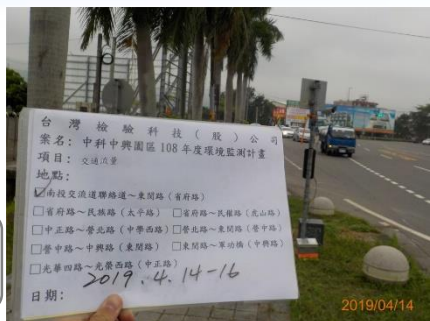 台灣檢驗科技(股)公司
案名:中科中興園區108年度環境監測計畫
項目:交通流量
地點:
☑南投交流道聯絡道~東閔路(省府路)
□省府路~民族路(太平路) □省府路~民權路(虎山路)
□中正路~營北路(中學西路) □營北路~東閔路(營中路)
□營中路~中興路(東閔路) □東閔路~軍功橋(中興路)
□光華四路~光榮西路(中正路)
日期:2019.4.14-16
2019/04/14